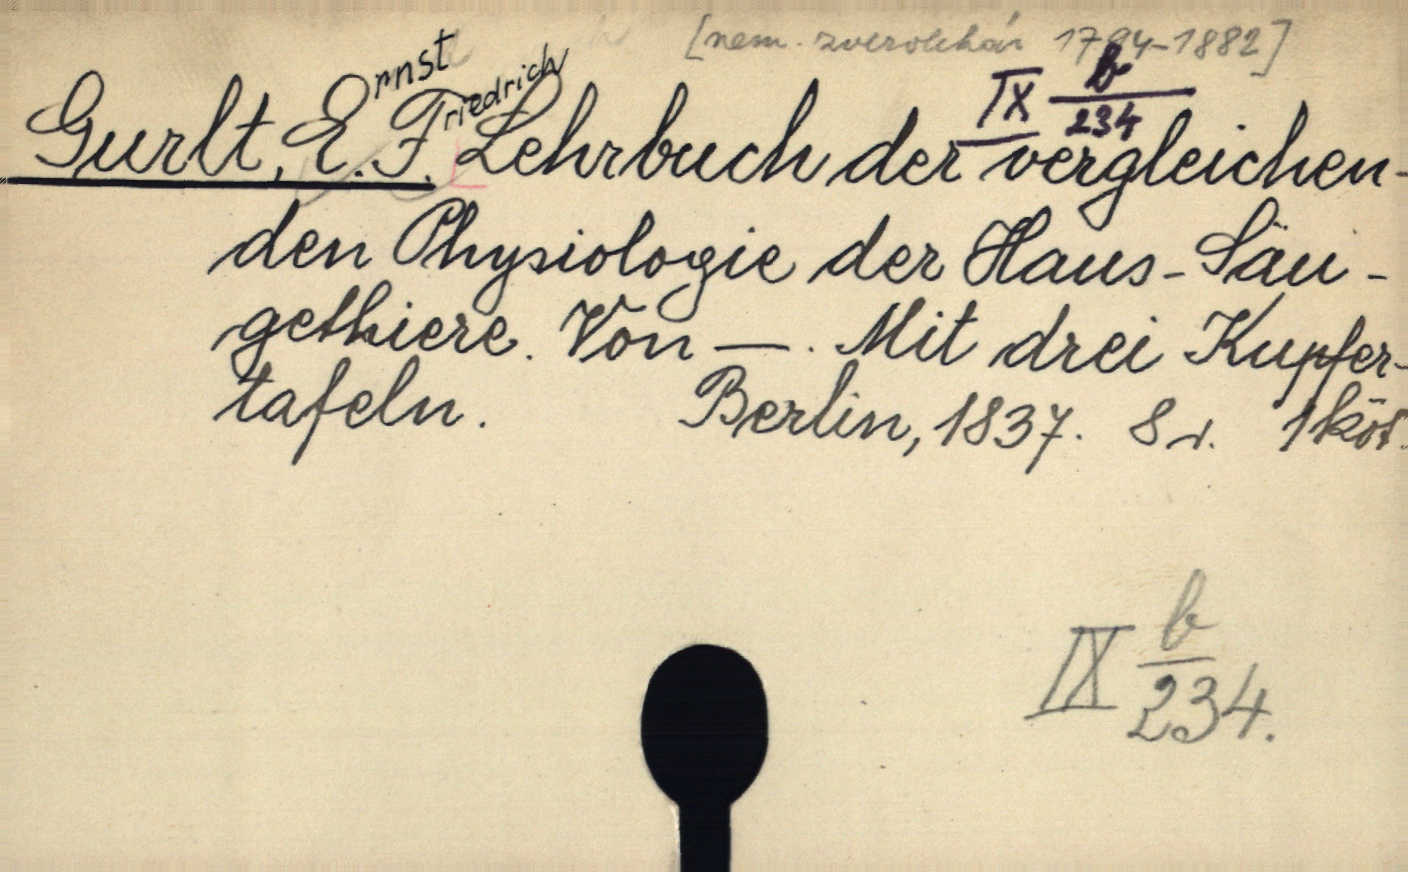 [nem. zverolekár 1794-1882]
IX b
234
Gurlt, Ernst Friedrich Lehrbuch der vergleichen-
den Physiologie der Haus-Säu-
gethiere. Von —. Mit drei Kupfer-
tafeln. Berlin, 1837. 8 r. 1 köt.
IX b
234.